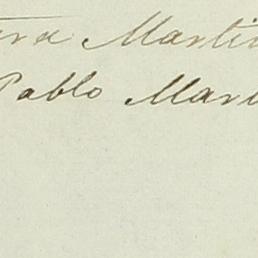 Marti
Pablo Mar